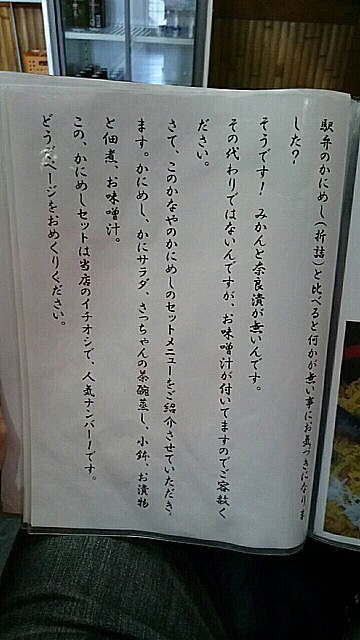 駅弁のかにめし(折詰)と比べると何かが無い事にお気づきになりま
した?
そうです! みかんと奈良漬が無いんです。
その代わりではないんですが、お味噌汁が付いてますのでご容赦く
ださい。
さて、このかなやのかにめしのセットメニューをご紹介させていただき
ます。かにめし、かにサラダ、さっちゃんの茶碗蒸し、小鉢、お漬物
と佃煮、お味噌汁。
この、かにめしセットは当店のイチオシで、人気ナンバー1です。
どうぞページをおめくりください。